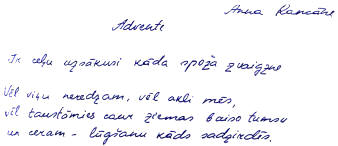 Anna Rancāne
Advente
Ir ceļu uzsākusi kāda spoža zvaigzne
Vēl viņu neredzam, vēl akli mēs,
vēl taustāmies caur ziemas baiso tumsu
un ceram - lūgšanu kāds sadzirdēs.